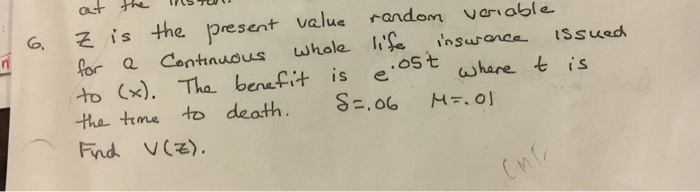 at the
6. Z is the present value random variable
for a Continuous whole life insurance issued
to (x). The benefit is e^.05t where t is
the time to death. δ=.06 μ=.01
Find V(Z).